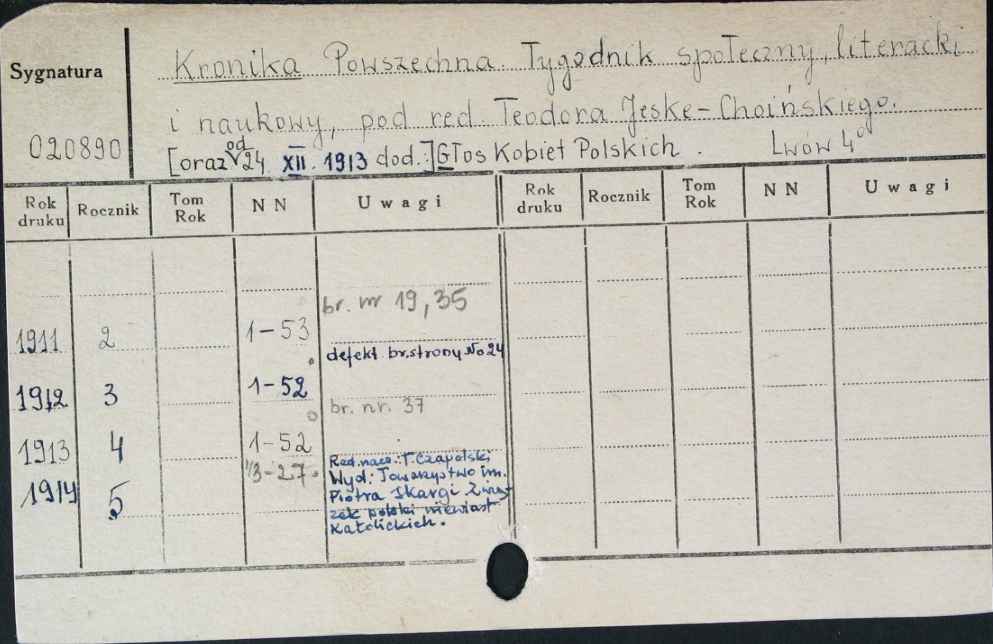 Sygnatura
Kronika Powszechna Tygodnik społeczny, literacki
i naukowy, pod red. Teodora Jeske-Choińskiego.
020890
[oraz od 24 XII. 1913 dod.:] Głos Kobiet Polskich. Lwów 4°
Rok druku Rocznik Tom Rok NN Uwagi Rok druku Rocznik Tom Rok NN Uwagi
br. nr 19, 35
1911 2 1-53
defekt br. strony No 24
1912 3 1-52
br. nr. 37
1913 4 1-52
Red. nacz.: T. Czapelski
1914 5 1/3-27.
Wyd: Towarzystwo im.
Piotra Skargi Zwią-
zek polski niewiast
Katolickich.